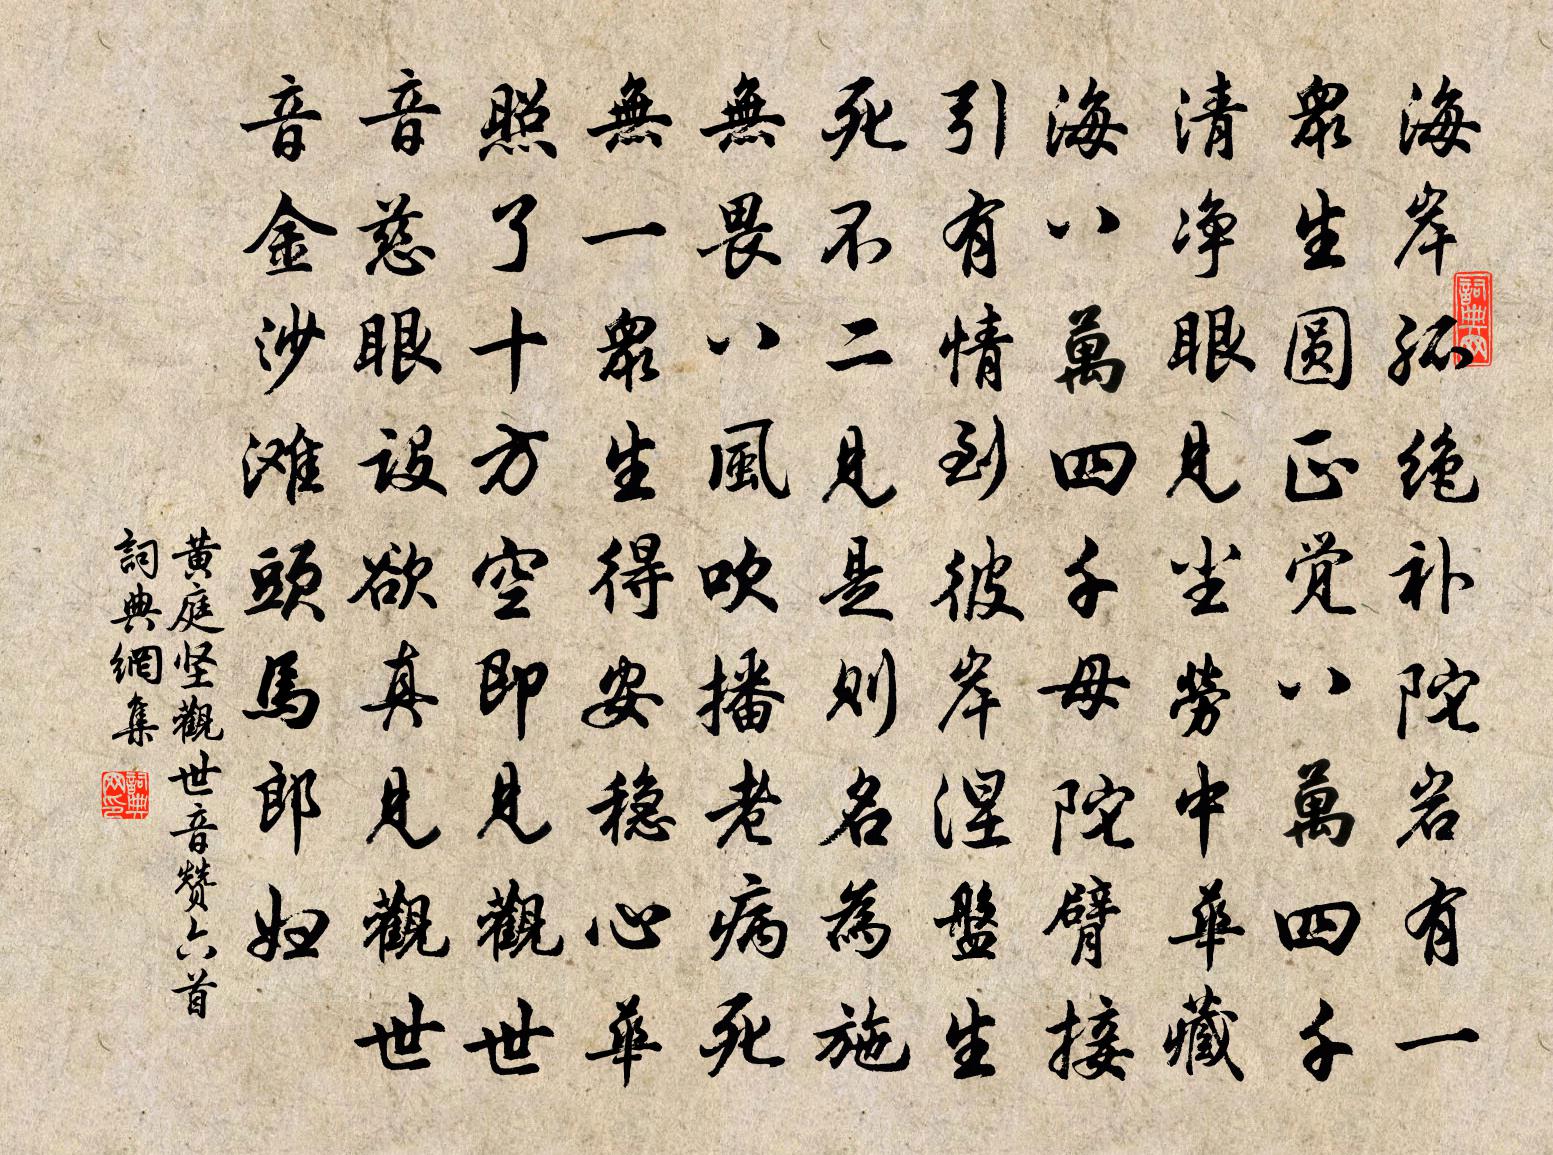 海岸孤绝补陀岩有一
衆生圆正觉八萬四千
清净眼見尘勞中華藏
海八萬四千母陀臂接
引有情到彼岸涅盤生
死不二見是则名為施
無畏八風吹播老病死
無一衆生得安稳心華
照了十方空即見觀世
音慈眼設欲真見觀世
音金沙滩頭馬郎妇
黄庭坚觀世音赞六首
詞典網集
詞典网
詞典网印